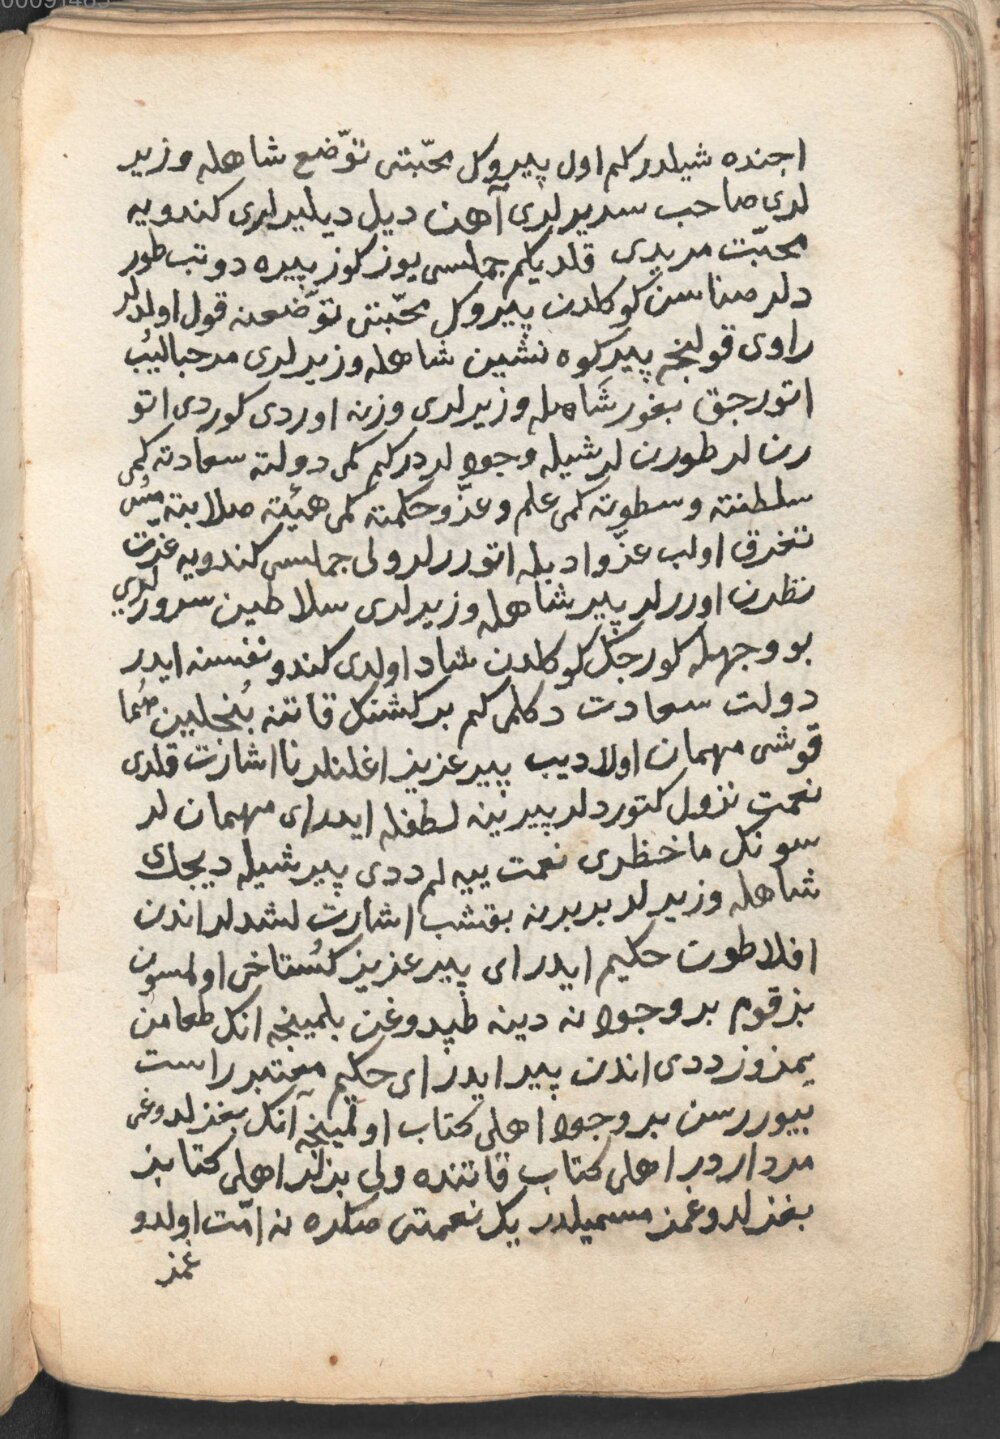 00091485
اجنده شیلدرکلم اول پیروکل محبّتی توّضع شاهله وزیر
لدی صاحب سدیرلدی آهن دیل دیلیرلری کندویه
محبّت مریدی قلدیکم جملسی یوزکوز پیره دوتب طور
دلر صناسن کوکلدن پیروکل محبّتی توّضعنه قول اولدلر
راوی قولنجه پیرکوه نشین شاهله وزیرلدی مرحبالیب
اتورجق بغور شاهله وزیرلدی وزنه اوردی کوردی اتو
رن لر طورن لر شیله وجوا لردرکم کمی دولته سعادته کمی
سلطنته وسطوته کمی علم وعزّوحکمته کمی هئیته صلابته مش
تغرق اولب عزّوادبله اتوررلر ولی جملسی کندویه عزّت
نظرن اوررلر پیرشاهله وزیرلری سلاطین سرورلری
بووجهله کورجک کوکلدن شاد اولدی کندونفسنه ایدر
دولت سعادت دکلمی کم برکشنک قاتنه بُنجلین هُما
قوشی مهمان اولا دیب پیرعزیز اغلنلرنا اشارت قلدی
نعمت نزول کتوردلر پیر ینه لطفله ایدرای مهمان لر
سونک ماخظری نعمت ییه لم ددی پیر شیله دیجک
شاهله وزیرلر بربرنه بقشب اشارت لشدلر اندن
افلاطون حکیم ایدرای پیرعزیز کُستاخی اولمسون
بزقوم بروجوا نه دینه طپدوغن بلمینجه انک طعامن
یمزوز ددی اندن پیر ایدر ای حکیم معتبر راست
بیوررسن بروجوا اهلی کتاب اولمینجه آنک بغزلدوغی
مردارور اهلی کتاب قاتنده ولی بزلر اهلی کتابز
بغزلدوغمز مسمیلدر یک نعمتی صکره نه امّت اولدو
غمز